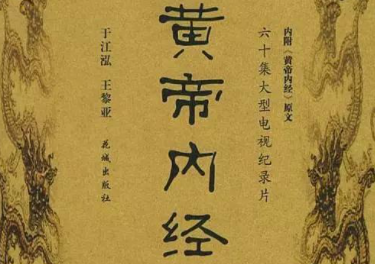 内附《黄帝内经》原文
六十集大型电视纪录片
黄帝内经
于江泓 王黎亚
花城出版社